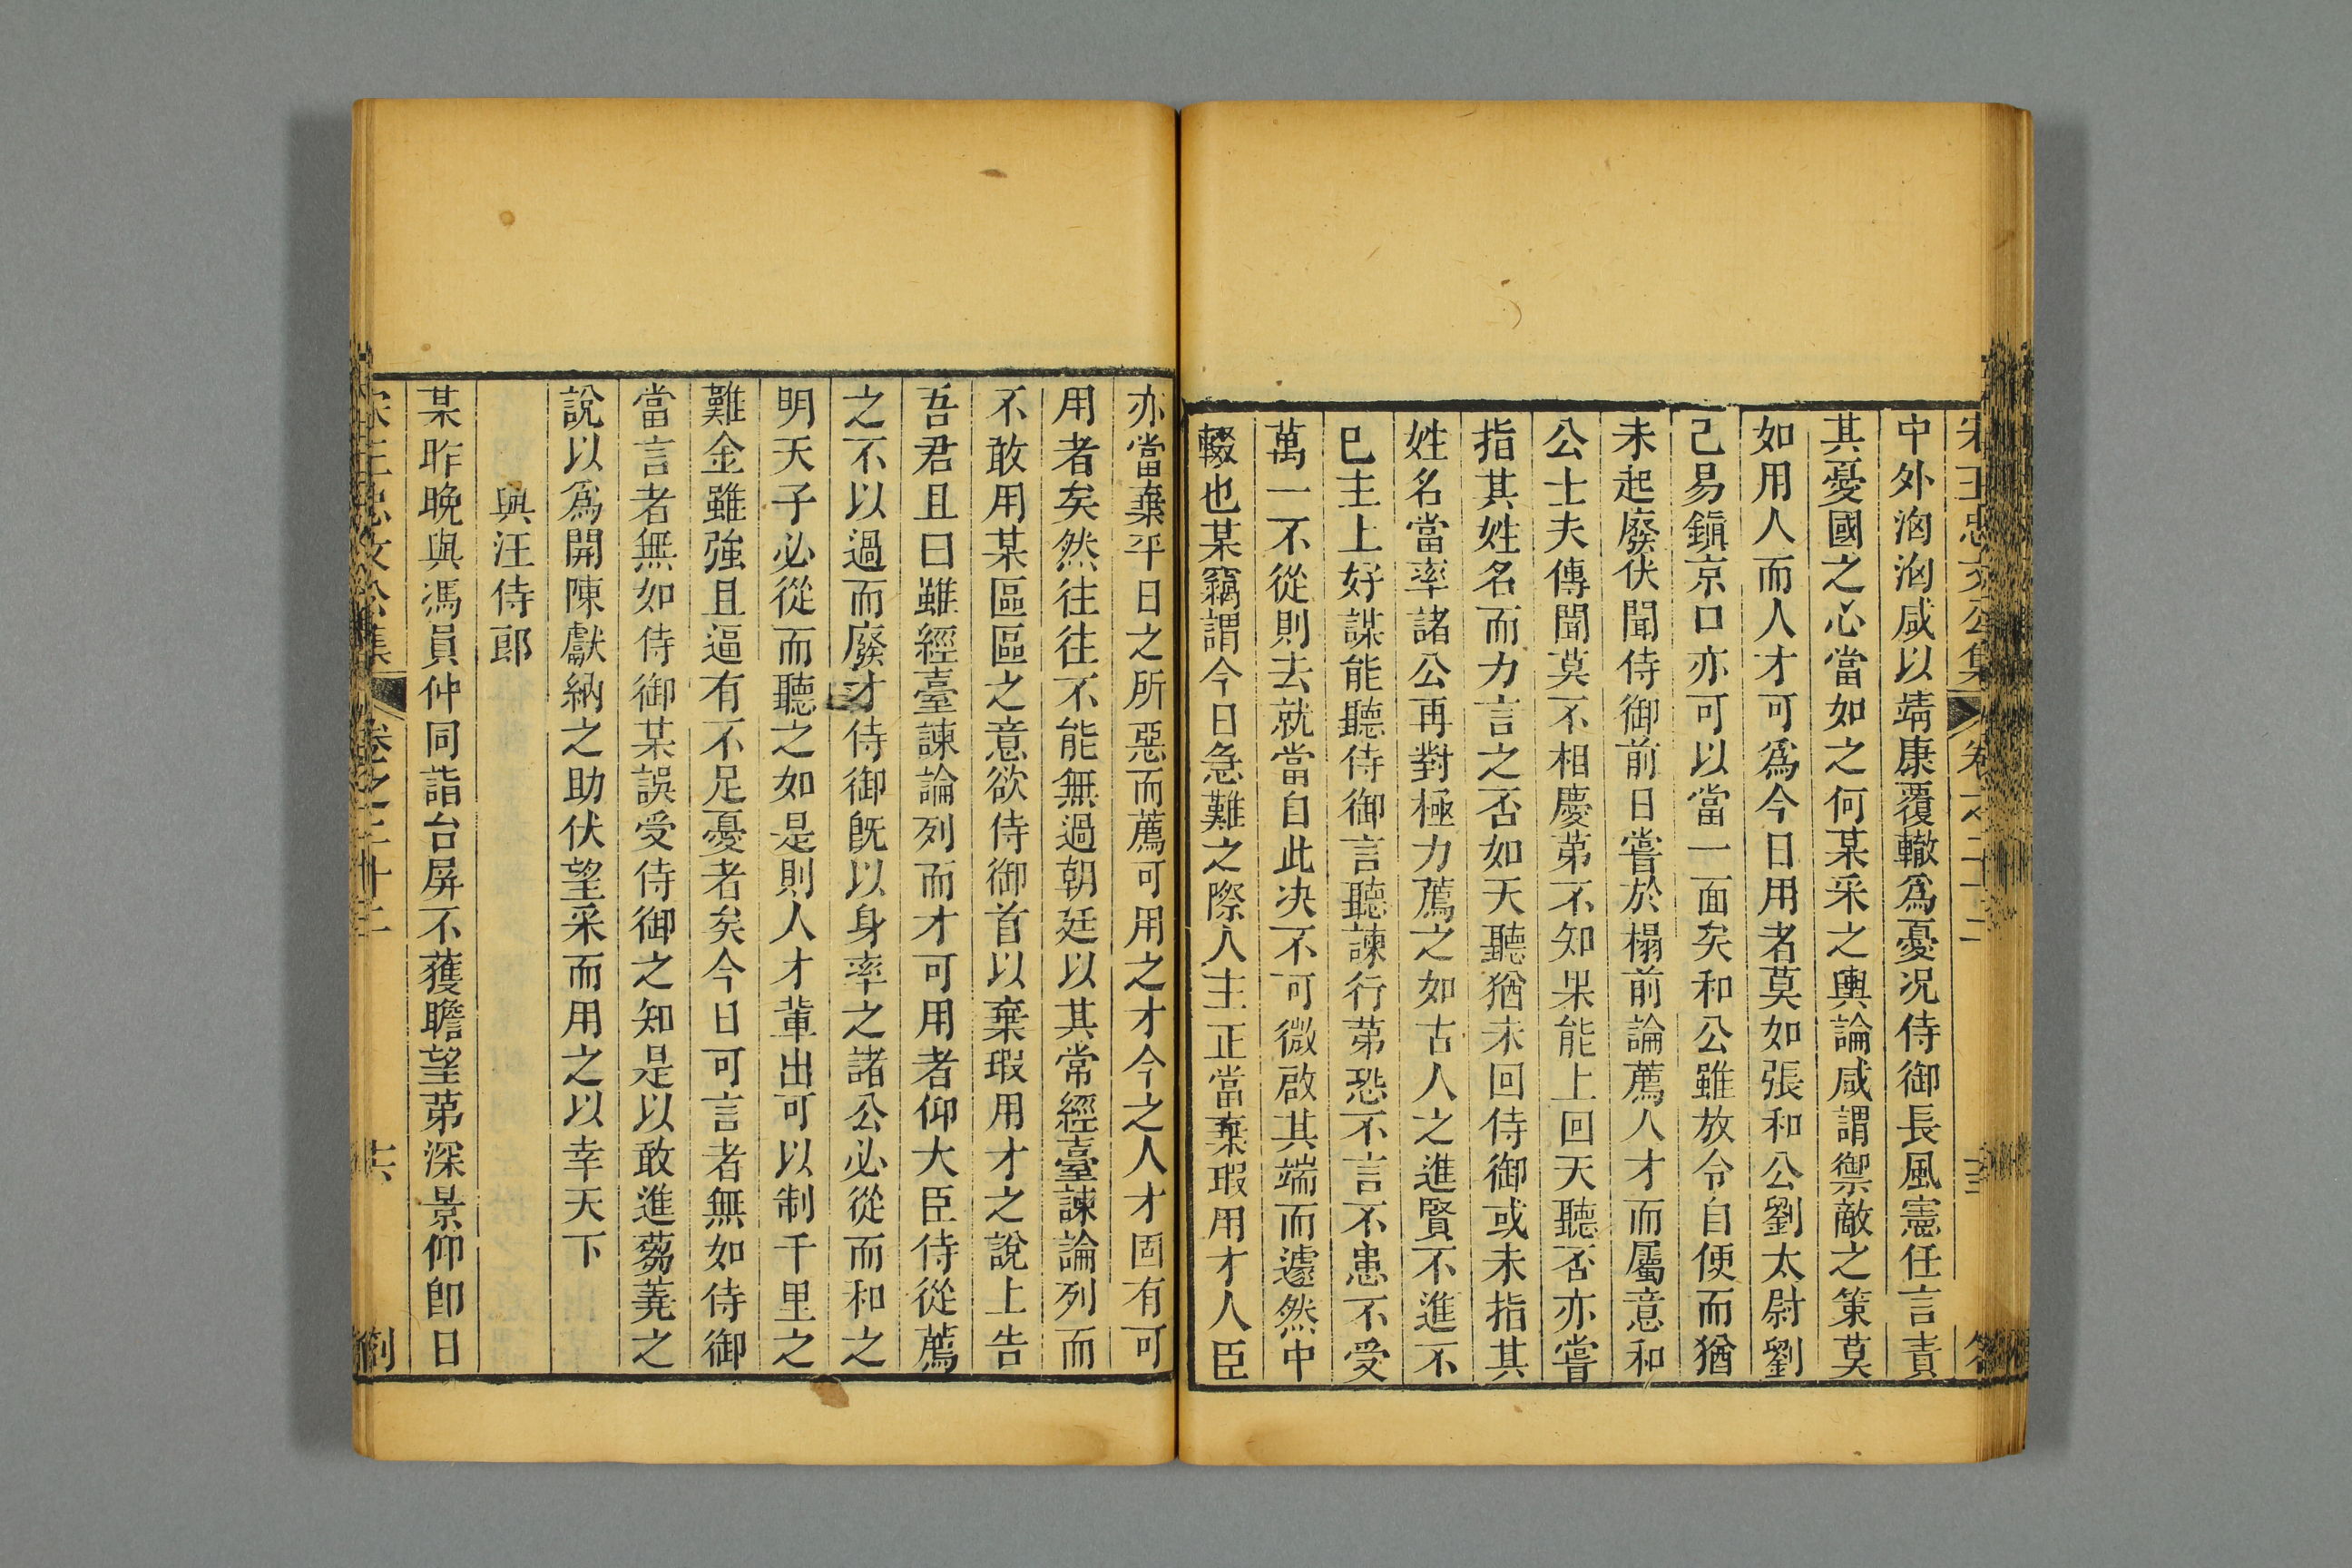 中外洶洶咸以靖康覆轍爲憂况侍御長風憲任言責
其憂國之心當如之何某采之輿論咸謂禦敵之策莫
如用人而人才可爲今日用者莫如張和公劉太尉劉
已易鎭京口亦可以當一面矣和公雖放令自便而猶
未起廢伏聞侍御前日嘗於榻前論薦人才而屬意和
公士夫傳聞莫不相慶苐不知果能上回天聽否亦嘗
指其姓名而力言之否如天聽猶未回侍御或未指其
姓名當率諸公再對極力薦之如古人之進賢不進不
已主上好謀能聽侍御言聽諫行苐恐不言不患不受
萬一不從則去就當自此决不可微啟其端而遽然中
輟也某竊謂今日急難之際人主正當棄瑕用才人臣
亦當棄平日之所惡而薦可用之才今之人才固有可
用者矣然往往不能無過朝廷以其常經臺諫論列而
不敢用某區區之意欲侍御首以棄瑕用才之說上告
吾君且曰雖經臺諫論列而才可用者仰大臣侍從薦
之不以過而廢才侍御旣以身率之諸公必從而和之
明天子必從而聽之如是則人才輩出可以制千里之
難金雖強且逼有不足憂者矣今日可言者無如侍御
當言者無如侍御某誤受侍御之知是以敢進蒭蕘之
說以爲開陳獻納之助伏望采而用之以幸天下
與汪侍郎
某昨晚與馮員仲同詣台屏不獲瞻望苐深景仰卽日